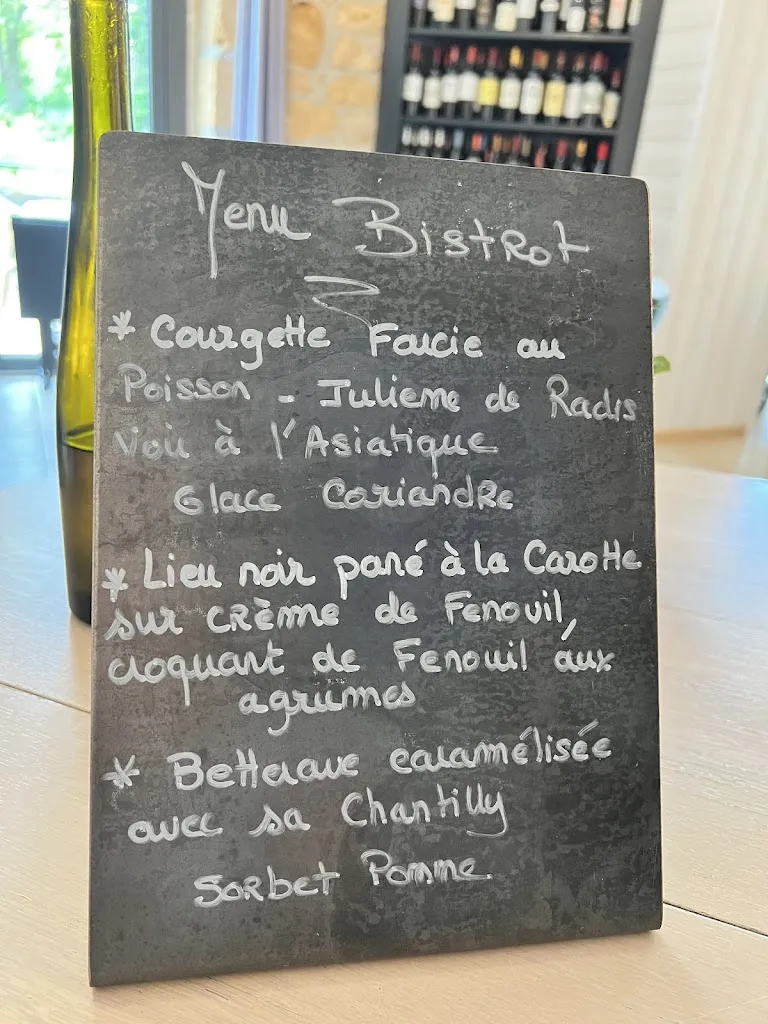 Menu Bistrot
* Courgette Farcie au
Poisson - Julienne de Radis
noir à l'Asiatique
Glace Coriandre
* Lieu noir pané à la Carotte
sur crème de Fenouil,
croquant de Fenouil aux
agrumes
* Betterave caramélisée
avec sa Chantilly
Sorbet Pomme